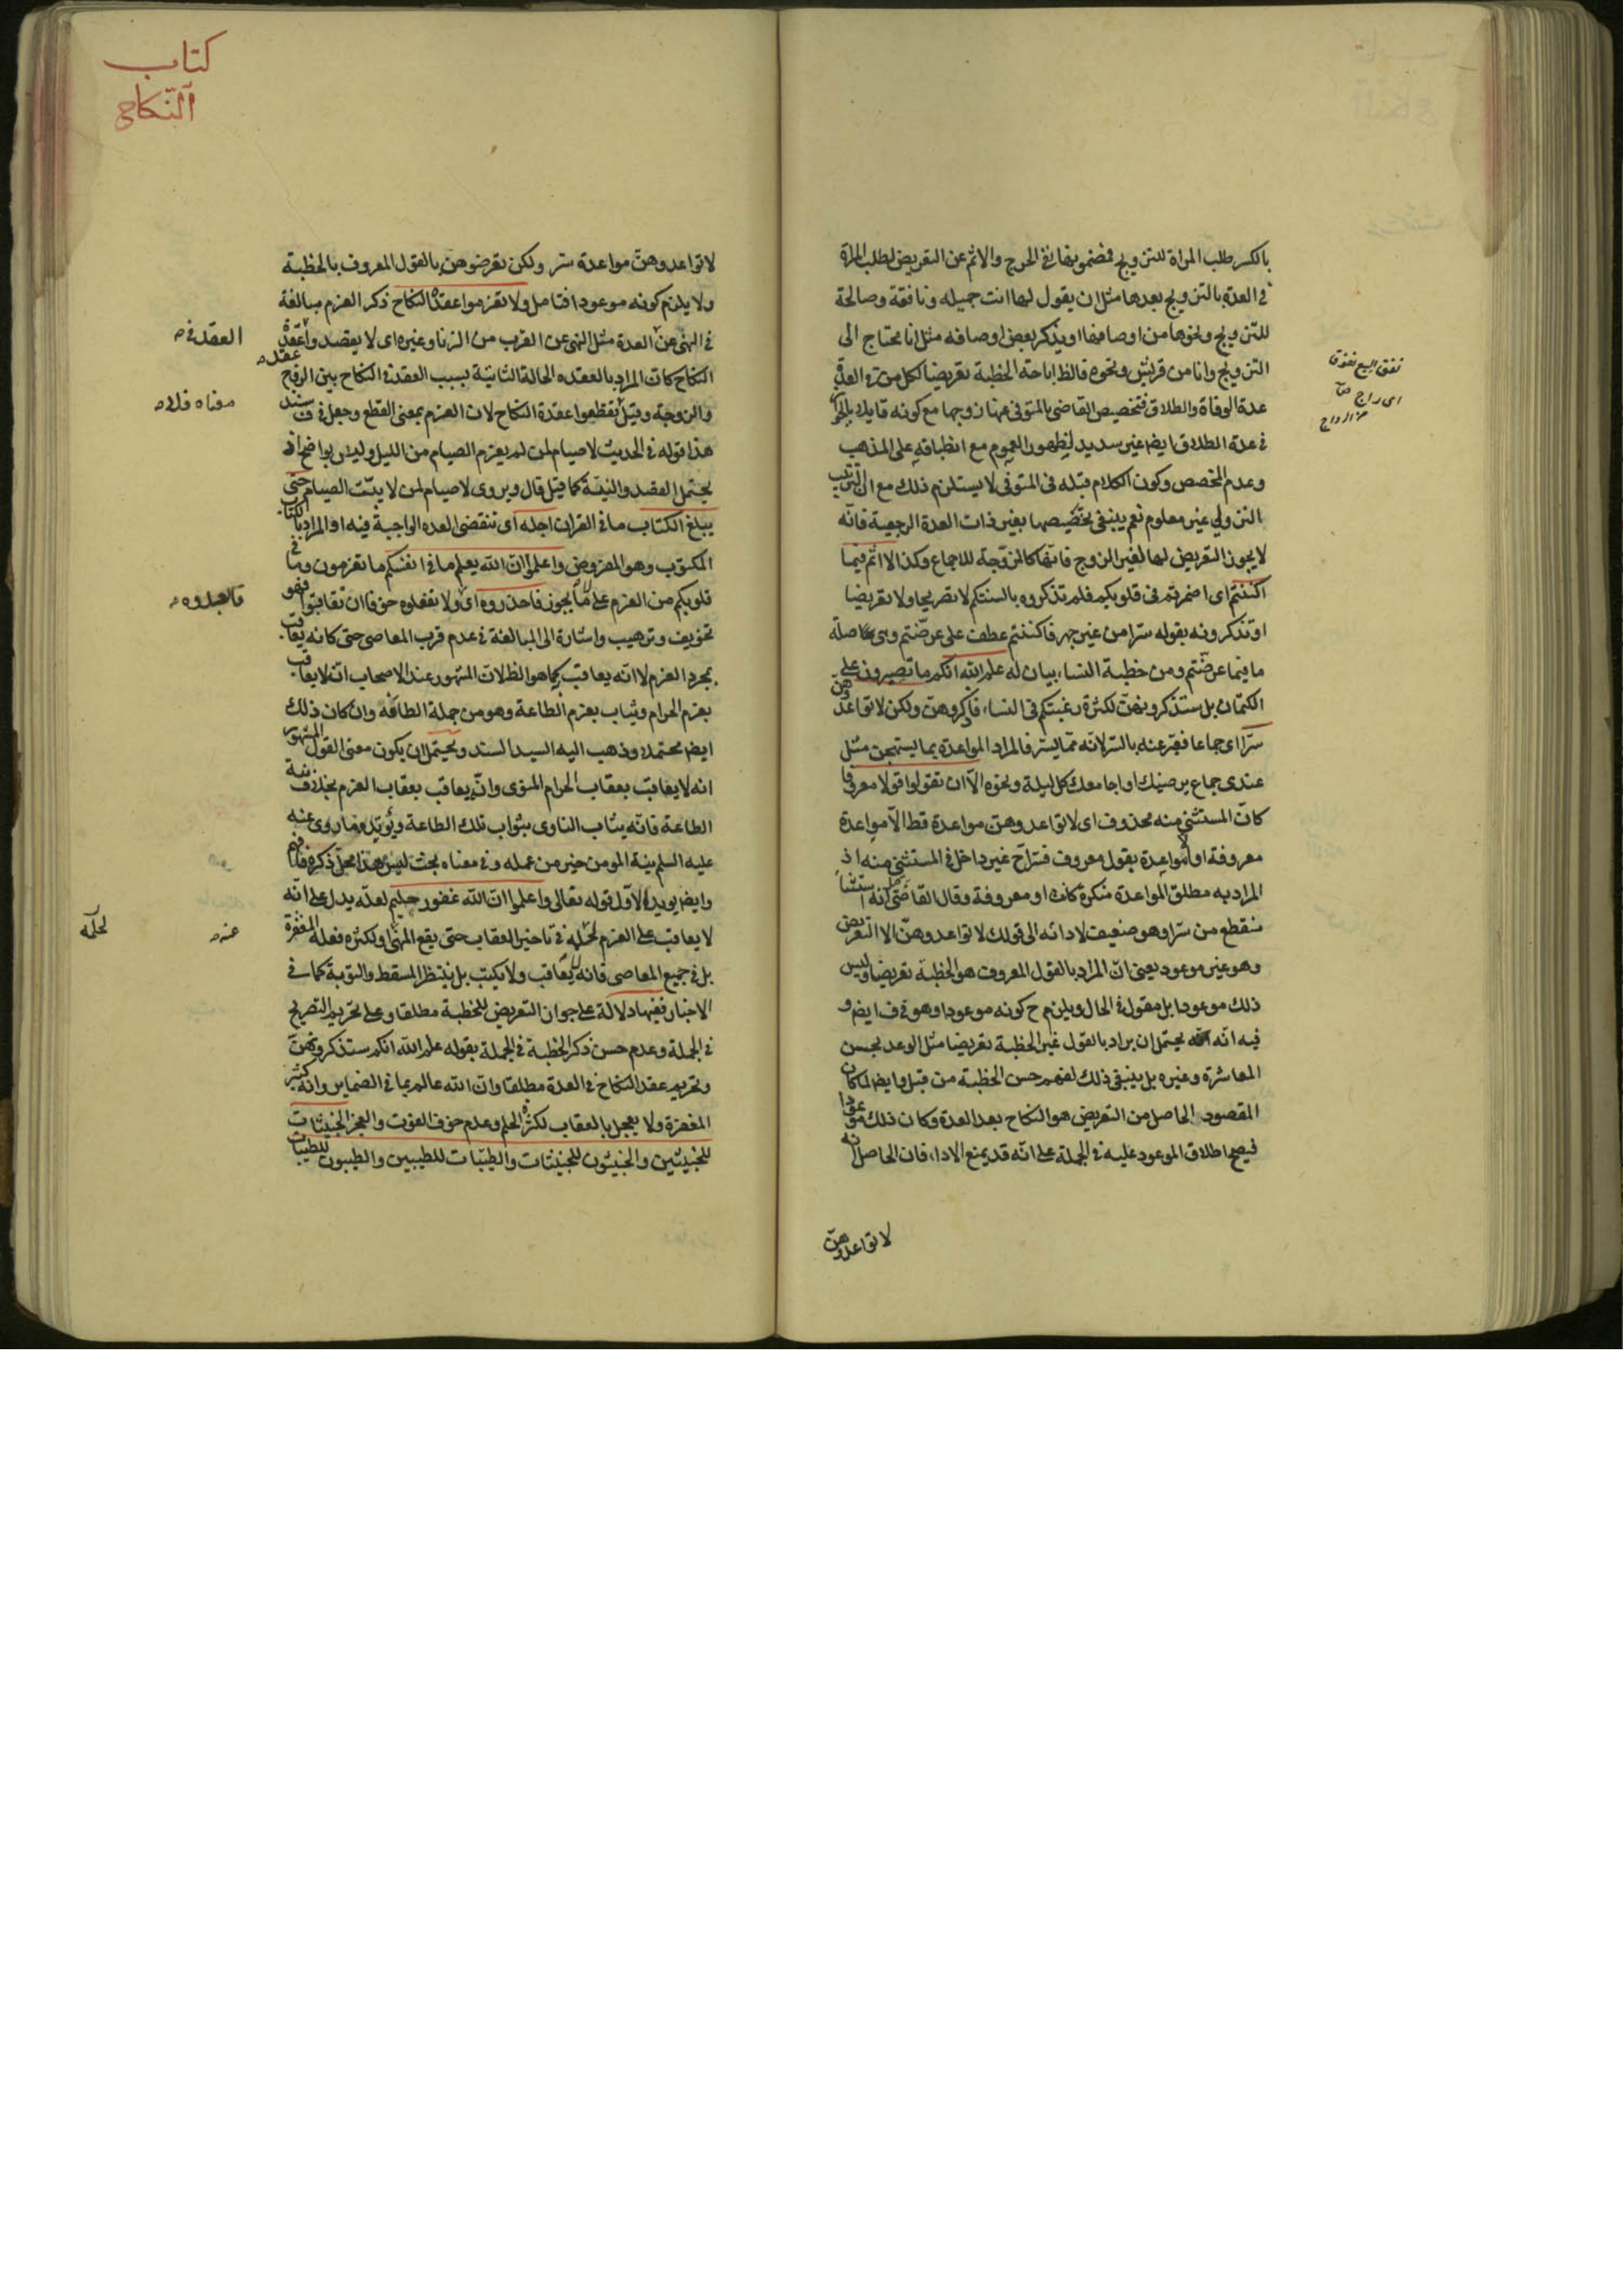 بالكسر طلب المراة للتزويج فمضمونها نفى الحرج والاثم عن التعريض لطلب المراة
فى العدة بالتزويج بعدها مثل ان يقول لها انت جميله ونافقة وصالحة
للتزويج ونحوها من اوصافها او يذكر بعض اوصافه مثل انا محتاج الى
التزويج وانا من قريش ونحوه فالظ اباحة الخطبة تعريضا لكل من فى العدة
عدة الوفاة والطلاق فتخصيص القاضى بالمتوفى عنها زوجها مع كونه قايلا بالجواز
فى عدة الطلاق ايضا غير سديد لظهور العموم مع انطباقه على المذهب
وعدم المخصص وكون الكلام قبله فى المتوفى لا يستلزم ذلك مع ان الترتيب
النزولي غير معلوم نعم ينبغى تخصيصها بغير ذات العدة الرجعية فانه
لا يجوز التعريض لها لغير الزوج فانها كالزوجة للاجماع وكذا لا اثم فيما
اكننتم اى اضمرتم فى قلوبكم فلم تذكروه بالسنتكم لا تصريحا ولا تعريضا
او تذكرونه بقوله سرا من غير جهر فاكننتم عطف على عرضتم وهى صلة
ما فيما عرضتم ومن خطبة النساء بيان له علم الله انكم ما تصبرون على
الكتمان بل ستذكرونهن لكثرة رغبتكم فى النساء فاذكروهن ولكن لا تواعدوهن
سرا اى جماعا فعبر عنه بالسر لانه مما يسر فالمراد المواعدة بما يستهجن مثل
عندى جماع يرضيك او اجامعك كل ليلة ونحوه الا ان تقولوا قولا معروفا
كان المستثنى منه محذوف اى لا تواعدوهن مواعدة قط الا مواعدة
معروفة او الا مواعدة بقول معروف فسرا ح غير داخل فى المستثنى منه اذ
المراد به مطلق المواعدة منكرة كانت او معروفة وقال القاضى انه استثناء
منقطع من سرا وهو ضعيف لادائه الى قولك لا تواعدوهن الا التعريض
وهو غير موعود يعنى ان المراد بالقول المعروف هو الخطبة تعريضا وليس
ذلك موعودا بل مقول فى الحال ويلزم ح كونه موعودا وهو فى ف ايض و
فيه انه يحتمل ان يراد بالقول غير الخطبة تعريضا مثل الوعد بحسن
المعاشرة وغيره بل ينبغى ذلك لفهم حسن الخطبة من قبل وايض لما كان
المقصود الحاصل من التعريض هو النكاح بعد العدة وكان ذلك موعودا
فيصح اطلاق الموعود عليه فى الجملة على انه قد يمنع الاداء فان الحاصل انه
لا تواعدوهن
نفق البيع نفوق
اى راج
من الرواج
كتاب
النكاح
لا تواعدوهن مواعدة سر ولكن تعرضوهن بالقول المعروف بالخطبة
ولا يلزم كونه موعودا فتامل ولا تعزموا عقدة النكاح ذكر العزم مبالغة
فى النهى عن العدة مثل النهى عن القرب من الزنا وغيره اى لا يقصدوا عقدة
النكاح كان المراد بالعقده الحالة الثانية بسبب العقد فى النكاح بين الزوج
والزوجة وقيل لا تقطعوا عقدة النكاح لان العزم بمعنى القطع وجعل فى ف سند
هذا قوله فى الحديث لا صيام لمن لم يعزم الصيام من الليل وليس بواضح اذ
يحتمل القصد والنية كما قيل قال ويروى لا صيام لمن لا يبيت الصيام حتى
يبلغ الكتاب ما فى القران اجله اى تنقضى العده الواجبة فيه او المراد بالكتاب
المكتوب وهو المفروض واعلموا ان الله يعلم ما فى انفسكم ما تعزمون وما فى
قلوبكم من العزم على ما لا يجوز فاحذروه اى ولا تفعلوه خوفا ان تعاقبوا فهو
تخويف وترهيب واشارة الى المبالغة فى عدم قرب المعاصى حتى كانه يعاقب
بمجرد العزم لا انه يعاقب كما هو الظ لان المشهور عند الاصحاب انه لا يعاقب
بعزم الحرام ويثاب بعزم الطاعة وهو من جملة الطافه وان كان ذلك
ايض محتمله وذهب اليه السيد السند ويحتمل ان يكون معنى القول المشهور
انه لا يعاقب بعقاب الحرام المنوى وانه يعاقب بعقاب العزم بخلاف نية
الطاعة فانه يثاب الناوى بثواب تلك الطاعة ويؤيده ما روى عنه
عليه السلم نية المومن خير من عمله وفى معناه بحث ليس هذا محل ذكره فافهم
وايض يويد الاول قوله تعالى واعلموا ان الله غفور حليم لعله يدل على انه
لا يعاقب على العزم لحلمه فى تاخير العقاب حتى يقع المنهى ولكثره فعله المغفرة
بل فى جميع المعاصى فانه لا يعاقب ولا يكتب بل ينتظر المسقط والتوبة كما فى
الاخبار ففيها دلالة على جواز التعريض للخطبة مطلقا وعلى تحريم التصريح
فى الجملة وعدم حسن ذكر الخطبة فى الجملة بقوله علم الله انكم ستذكرونهن
وتحريم عقد النكاح فى العدة مطلقا وان الله عالم بما فى الضماير وانه كثير
المغفرة ولا يعجل بالعقاب لكثرة الحلم وعدم خوف الفوت والعجز الخبيثات
للخبيثين والخبيثون للخبيثات والطيبات للطيبين والطيبون للطيبات
العقد فى
عقده
فاحذروه
عنه
لحلمه